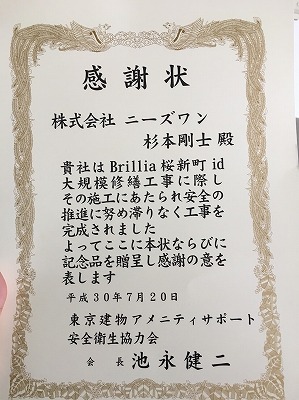 感謝状
株式会社 ニーズワン
杉本剛士 殿
貴社はBrillia桜新町id
大規模修繕工事に際し
その施工にあたられ安全の
推進に努め滞りなく工事を
完成されました
よってここに本状ならびに
記念品を贈呈し感謝の意を
表します
平成30年7月20日
東京建物アメニティサポート
安全衛生協力会
会長 池永健二